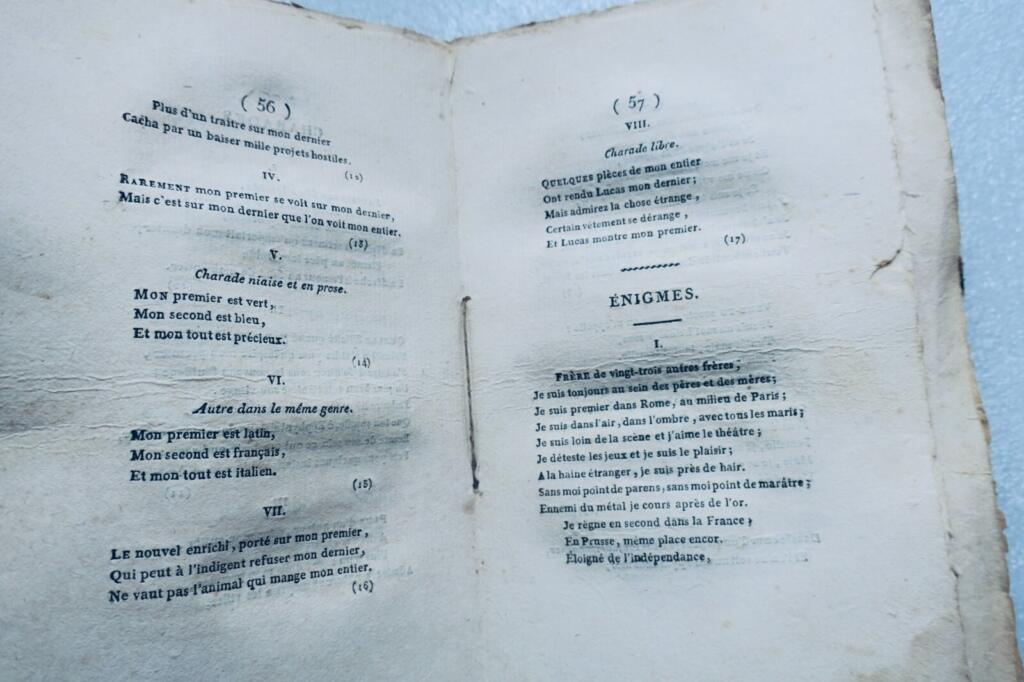 ( 56 )
Plus d'un traître sur mon dernier
Cacha par un baiser mille projets hostiles.
(12)
IV.
RAREMENT mon premier se voit sur mon dernier,
Mais c'est sur mon dernier que l'on voit mon entier.
(13)
V.
Charade niaise et en prose.
MON premier est vert,
Mon second est bleu,
Et mon tout est précieux.
(14)
VI.
Autre dans le même genre.
Mon premier est latin,
Mon second est français,
Et mon tout est italien.
(15)
VII.
LE nouvel enrichi, porté sur mon premier,
Qui peut à l'indigent refuser mon dernier,
Ne vaut pas l'animal qui mange mon entier.
(16)
( 57 )
VIII.
Charade libre.
QUELQUES pièces de mon entier
Ont rendu Lucas mon dernier;
Mais admirez la chose étrange,
Certain vêtement se dérange,
Et Lucas montre mon premier.
(17)
ÉNIGMES.
I.
FRÈRE de vingt-trois autres frères,
Je suis toujours au sein des pères et des mères;
Je suis premier dans Rome, au milieu de Paris;
Je suis dans l'air, dans l'ombre, avec tous les maris;
Je suis loin de la scène et j'aime le théâtre;
Je déteste les jeux et je suis le plaisir;
A la haine étranger, je suis près de hair.
Sans moi point de parens, sans moi point de marâtre;
Ennemi du métal je cours après de l'or.
Je règne en second dans la France,
En Prusse, même place encor.
Éloigné de l'indépendance,